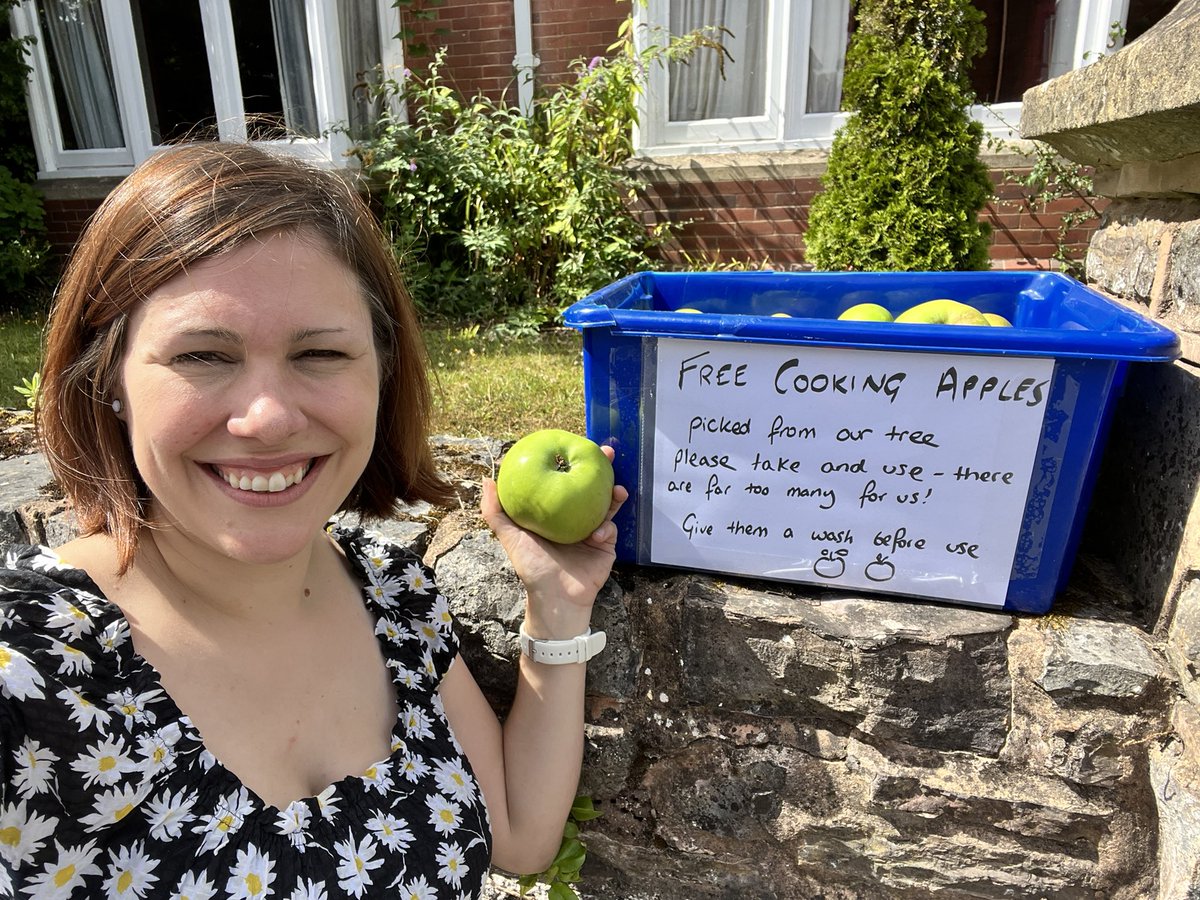 FREE COOKING APPLES
picked from our tree
please take and use - there
are far too many for us!
Give them a wash before use